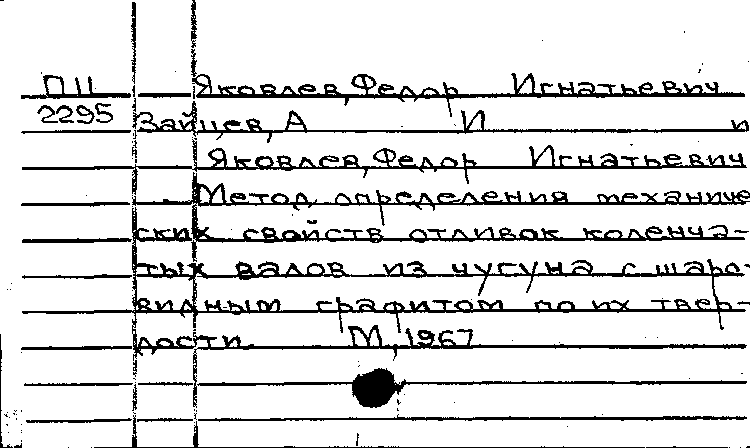 П11 Яковлев, Федор Игнатьевич
2295 Зайцев, А И и
Яковлев, Федор Игнатьевич
Метод определения механиче
ских свойств отливок коленча-
тых валов из чугуна с шаро-
видным графитом по их твер-
дости. М., 1967